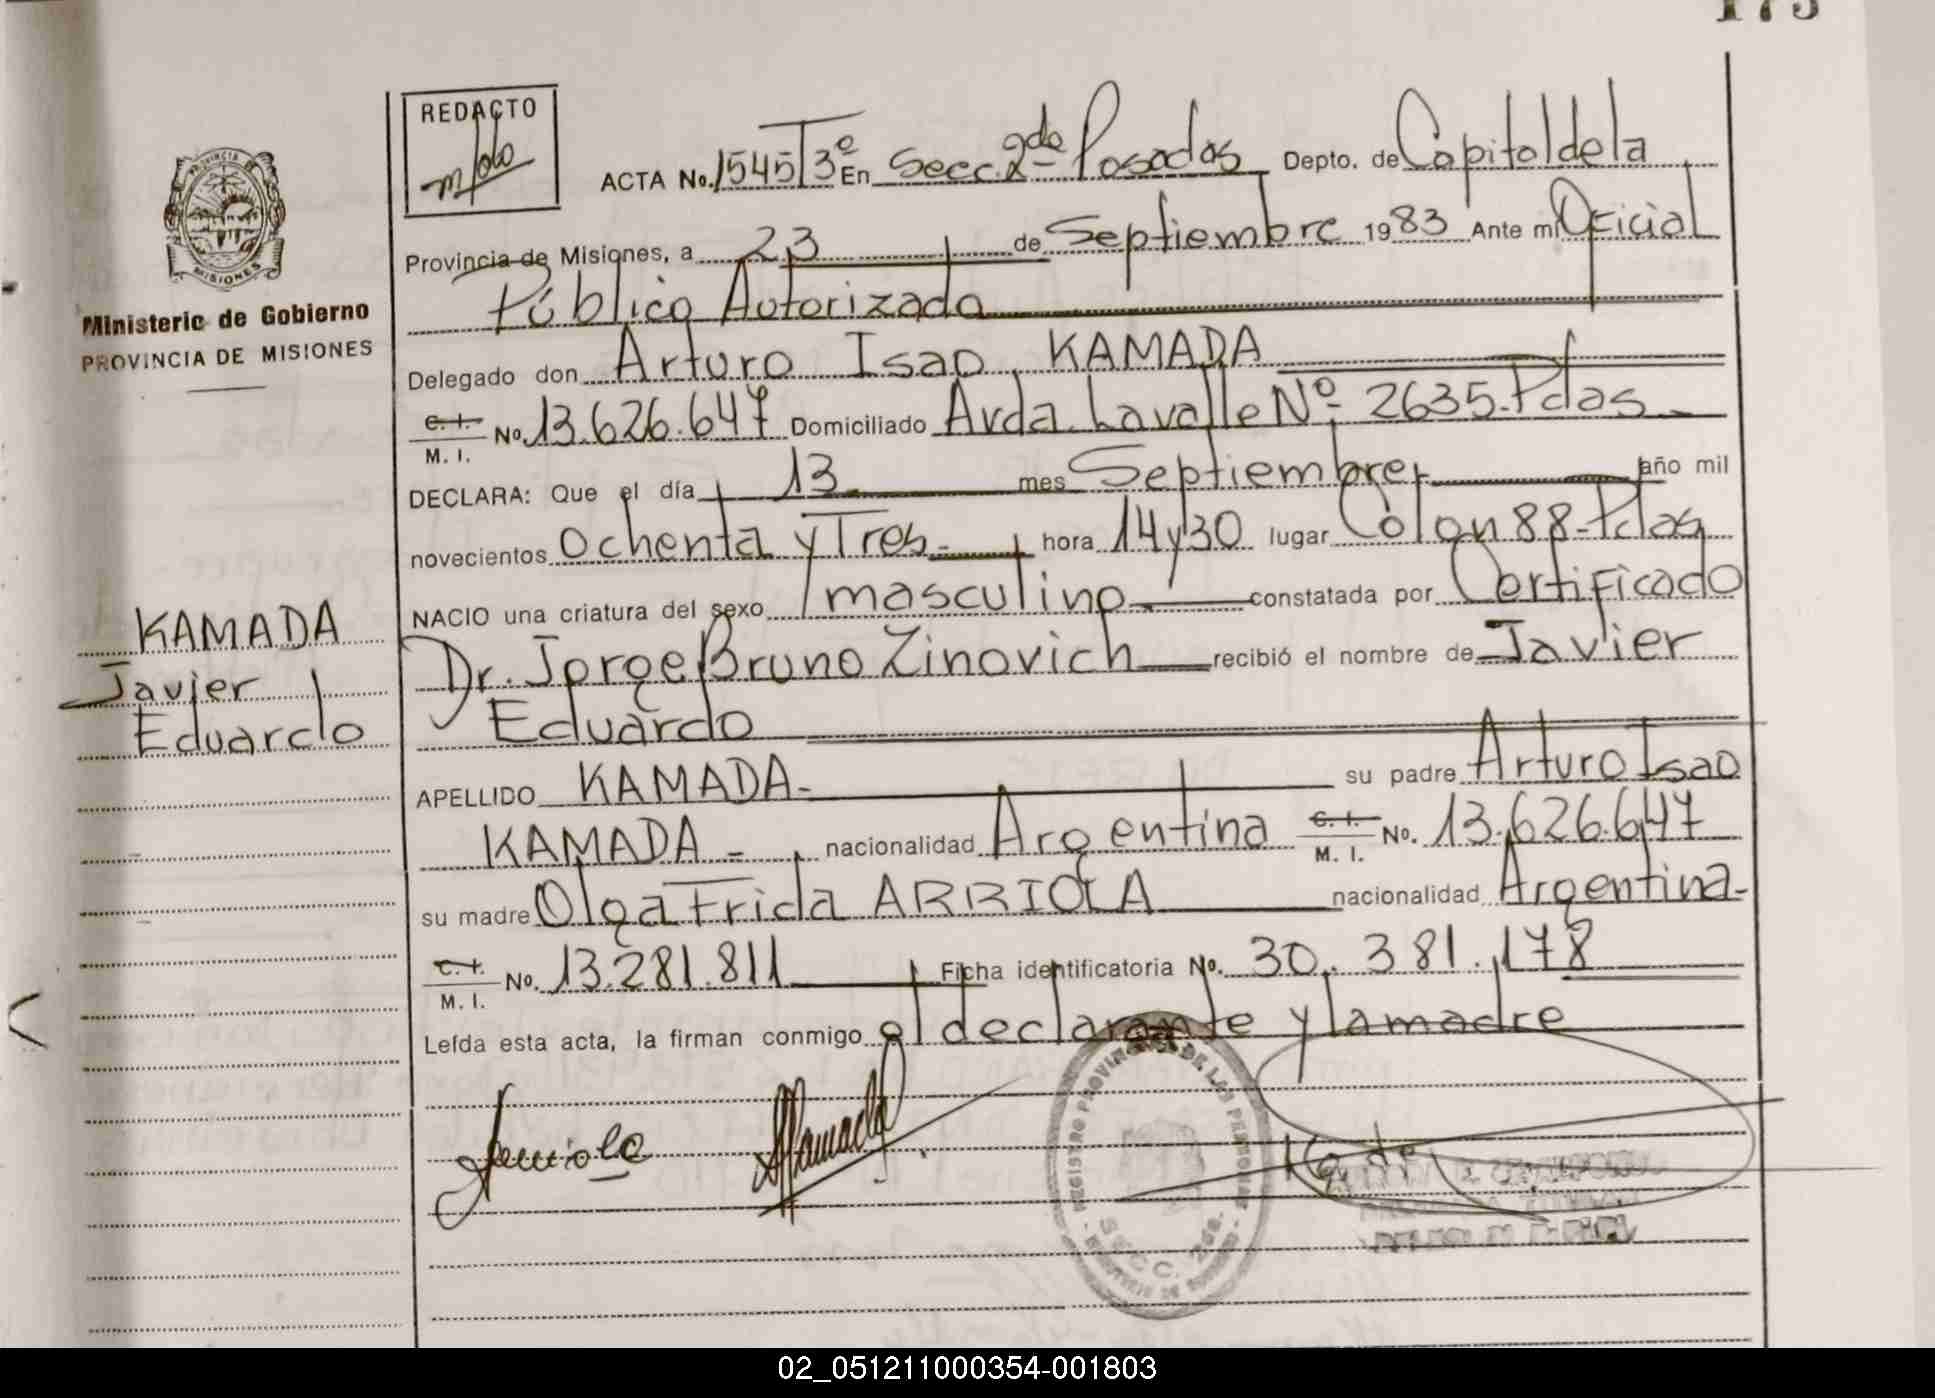 173
REDACTO
ACTA No. 1545 Tº 3º En Secc. 2da Posadas Depto. de Capital de la
Provincia de Misiones, a 23 de Septiembre 1983 Ante mi Oficial
Público Autorizado
Delegado don Arturo Isao KAMADA
C. I. M. I. No. 13.626.647 Domiciliado Avda. Lavalle Nº 2635-Pdas
DECLARA: Que el día 13 mes Septiembre año mil
novecientos Ochenta y Tres hora 14 y 30 lugar Colon 88-Pdas
NACIO una criatura del sexo masculino constatada por Certificado
Dr. Jorge Bruno Zinovich recibió el nombre de Javier
Eduardo
APELLIDO KAMADA- su padre Arturo Isao
KAMADA- nacionalidad Argentina C. I. M. I. No. 13.626.647
su madre Olga Frida ARRIOLA nacionalidad Argentina-
C. I. M. I. No. 13.281.811 Ficha identificatoria No. 30.381.178
Leída esta acta, la firman conmigo el declarante y la madre
PROVINCIA DE MISIONES
Ministerio de Gobierno
PROVINCIA DE MISIONES
KAMADA
Javier
Eduardo
REGISTRO PROVINCIAL DE LAS PERSONAS
SECC. 2da.
02_051211000354-001803